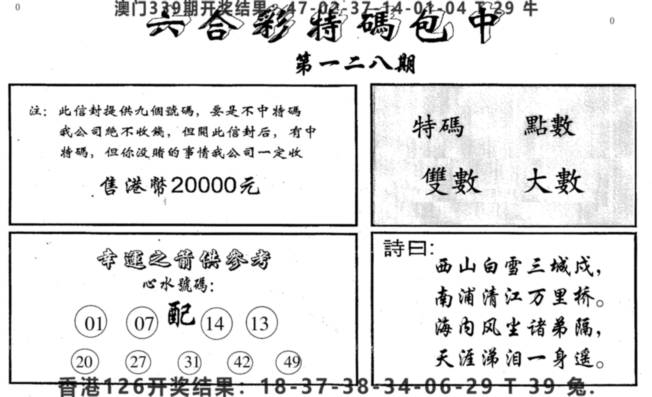 澳门339期开奖结果：47-02-37-14-01-04 T 29 牛
0
0
六合彩特碼包中
第一二八期
注：此信封提供九個號碼，要是不中特碼
我公司绝不收錢，但開此信封后，有中
特碼，但你没賭的事情我公司一定收
售港幣20000元
特碼 點數
雙數 大數
幸運之箭供參考
心水號碼：
01 07 配 14 13
20 27 31 42 49
詩曰：
西山白雪三城戍，
南浦清江万里桥。
海内风尘诸弟隔，
天涯涕泪一身遥。
香港126开奖结果：18-37-38-34-06-29 T 39 兔.